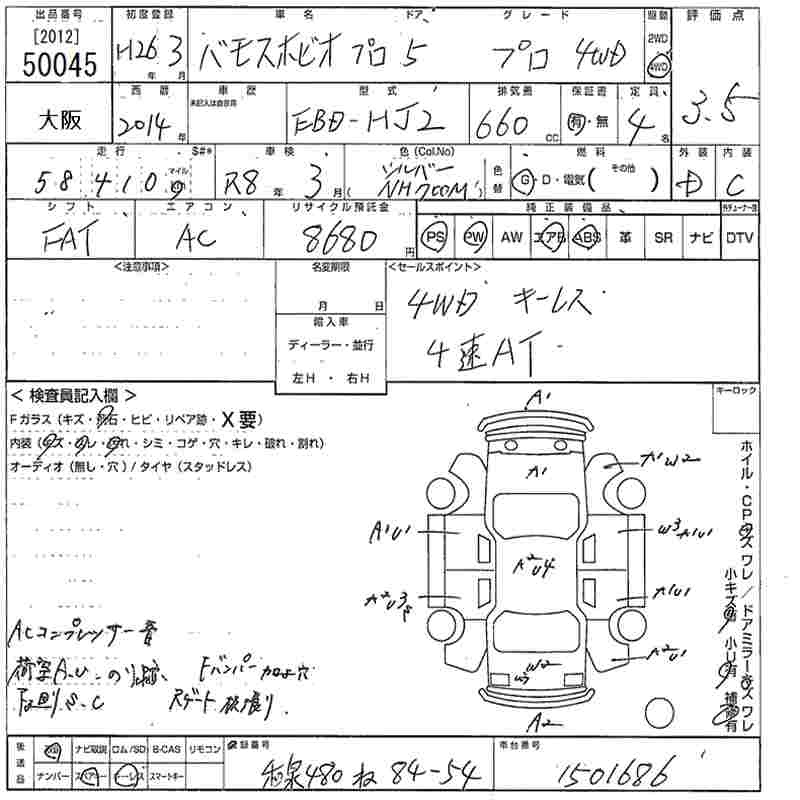 出品番号 初度登録 車名 ドア グレード 駆動 評価点
[2012]
50045 H26 3 バモスホビオ プロ 5 プロ 4WD 2WD 4WD 3.5
年 月
西暦 車歴 型式 排気量 保証書 定員
大阪 2014年 未記入は自家用 EBD-HJ2 660 CC 有・無 4名
走行 S#* 車検 色(Col.No) 色替 燃料 外装 内装
58410 マイル km R8年 3月 シルバー NH700M G・D・電気( その他 ) D C
シフト エアコン リサイクル預託金 純正装備品
FAT AC 8680円 PS PW AW エアB ABS 革 SR ナビ DTV
<注意事項> 名変期限 <セールスポイント>
月 日 4WD キーレス
輸入車
ディーラー・並行 4速AT
左H・右H
<検査員記入欄> キーロック
Fガラス(キズ・飛石・ヒビ・リペア跡・X要)
内装(キズ・汚れ・スレ・シミ・コゲ・穴・キレ・破れ・割れ)
オーディオ(無し・穴)/タイヤ(スタッドレス)
A1
A1 A1W2
A1U1 W3 A1U1
A2U4
A2U3 A1U1
A2U1
W2
W3
A2
ACコンプレッサー音
荷室A.U Fバンパー 穴
下廻りS.C Rゲート
ホイル・CPキズワレ/ドアミラーキズワレ
小キズ有 小U有 補修有
後送品 ナビ取説 ロム/SD B-CAS リモコン 登録番号 車台番号
ナンバー スペアキー キーレス スマートキー 和泉480 ね 84-54 1501686